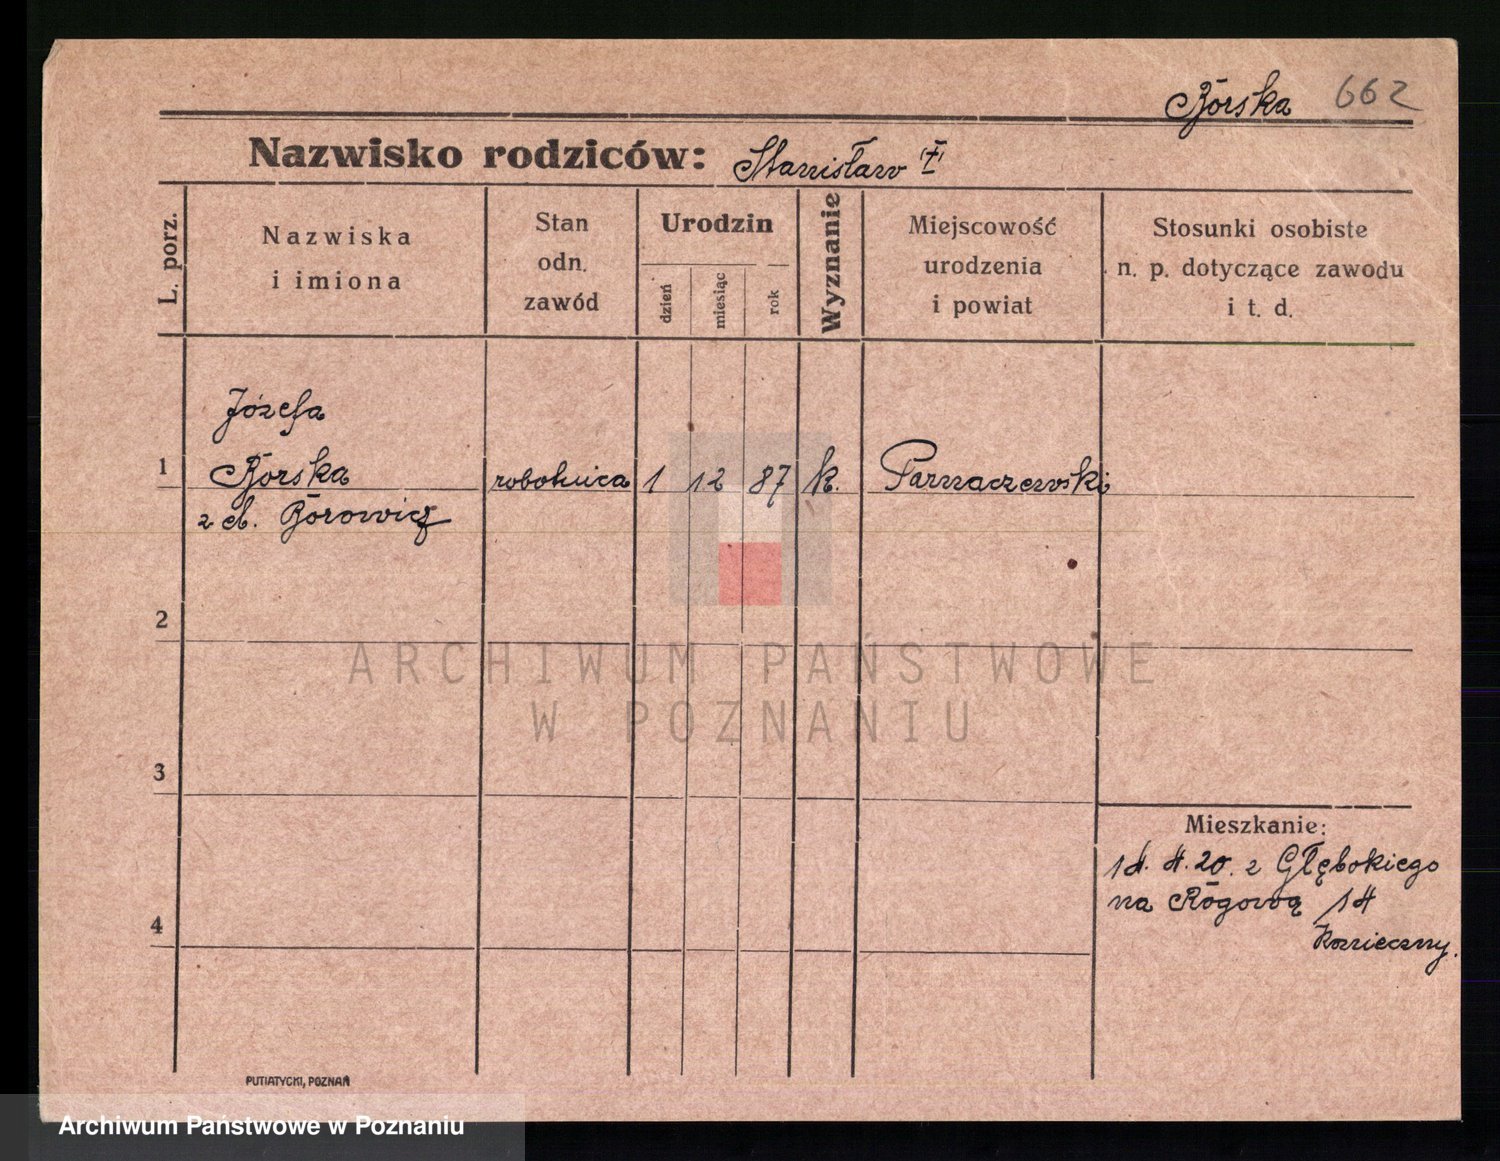 Borska 662
Nazwisko rodziców: Stanisław
L. porz.
Nazwiska
i imiona
Stan
odn.
zawód
Urodzin
dzień
miesiąc
rok
Wyznanie
Miejscowość
urodzenia
i powiat
Stosunki osobiste
n. p. dotyczące zawodu
i t. d.
Józefa
1 Borska robotnica 1 12 87 k. Parnaczewski
z d. Borowicz
2
ARCHIWUM PAŃSTWOWE
W POZNANIU
3
Mieszkanie:
14. 4. 20. z Głębokiego
na Rogową 14
Konieczny.
4
PUTIATYCKI, POZNAŃ
Archiwum Państwowe w Poznaniu